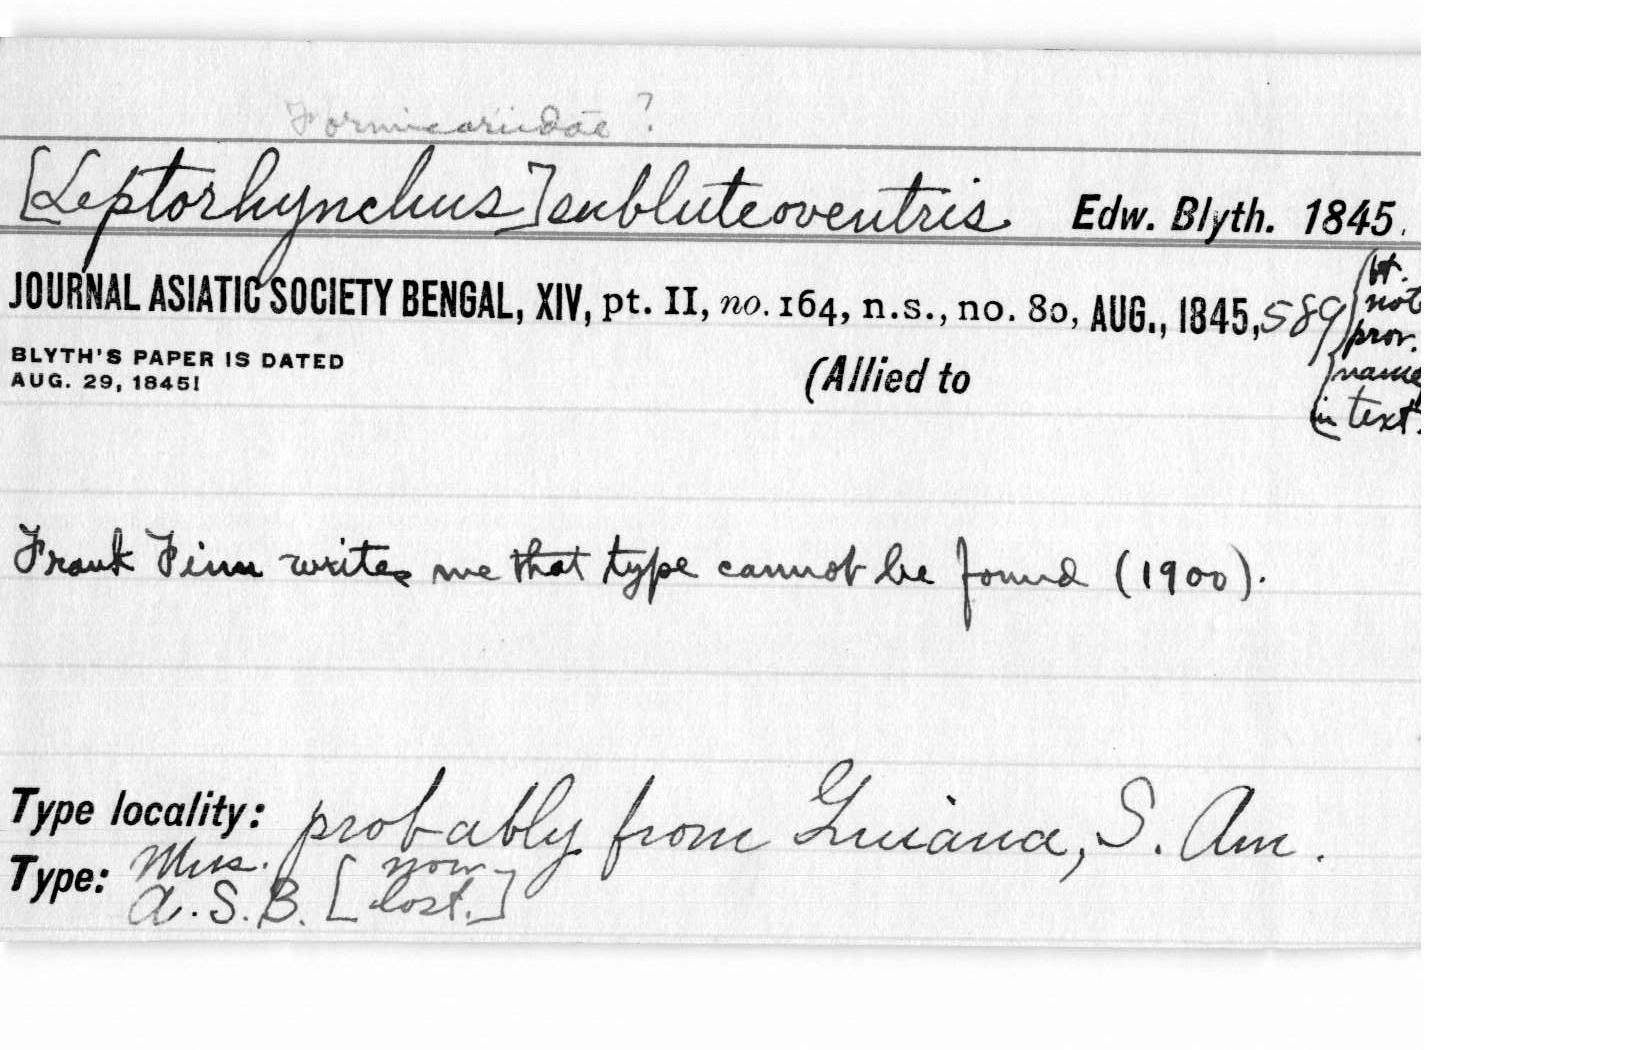 Formicariidae ?
[Leptorhynchus] subluteoventris Edw. Blyth. 1845.
JOURNAL ASIATIC SOCIETY BENGAL, XIV, pt. II, no. 164, n.s., no. 80, AUG., 1845, 589
not
prov.
name
in text.
BLYTH'S PAPER IS DATED
AUG. 29, 1845!
(Allied to
Frank Finn writes me that type cannot be found (1900).
Type locality: probably from Guiana, S. Am.
Type: Mus. A. S. B. [now lost.]